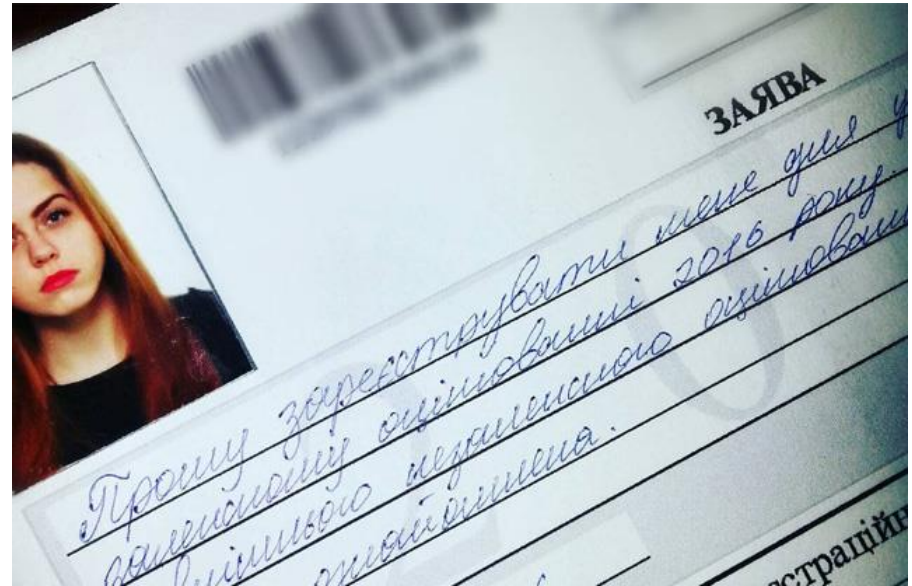 ЗАЯВА
Прошу зареєструвати мене для у
оцінюванні 2016 року.
незалежного оцінюван
ознайомлена.